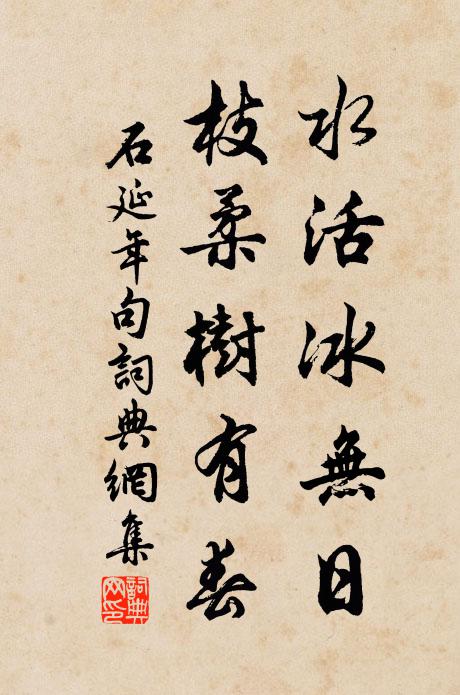 水活冰無日
枝柔樹有春
石延年句詞典網集
詞典網印